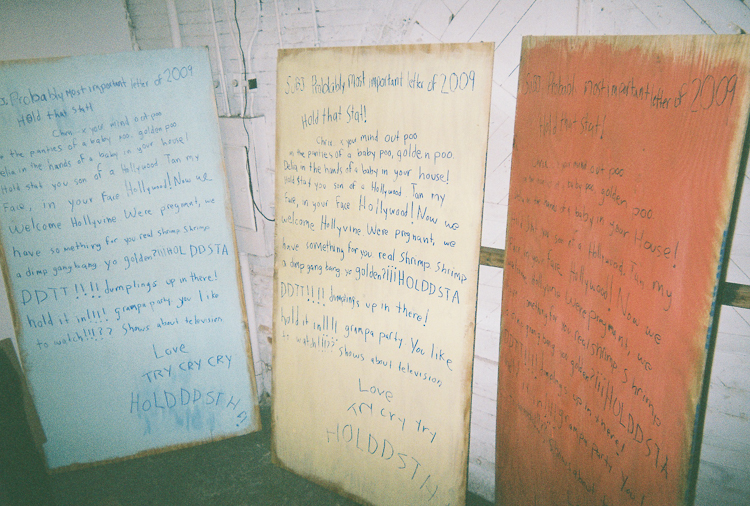 Probably most important letter of 2009
Hold that stat!
Chris x your mind out poo
the panties of a baby poo, golden poo.
Delia in the hands of a baby in your house!
Hold stat you son of a Hollywood Tan my
Face, in your Face Hollywood! Now we
Welcome Hollyvine Were pregnant, we
have something for you real shrimp shrimp
a dimp gang bang yo golden?!¡¡HOLDDSTA
DDTT!!!! dumplings up in there!
hold it in!!!! grampa party you like
to watch!!!?? Shows about television
Love
TRY CRY CRY
HOLDDDSTH
SUBJ Probably Most important letter of 2009
Hold that Stat!
Chris x your mind out poo
in the panties of a baby poo, golden poo.
Delia in the hands of a baby in your house!
hold stat you son of a Hollywood Tan my
face, in your face Hollywood! Now we
welcome Hollyvine Were pregnant, we
have something for you. real shrimp shrimp
a dimp gang bang yo golden?¡¡¡HOLDDSTA
DDTT!!!! dumplings up in there!
hold it in!!!! grampa party. You like
to watch!!!?? Shows about television
Love
Try Cry try
HOLDDSTA
most important letter of 2009
Hold that Stat!
your mind out poo
of a baby poo, golden poo.
in the hands of a baby in your House!
stat you son of a Hollywood. Tan my
Face in your face, Hollywood! Now we
Were pregnant, we
something for you real shrimp shrimp
gang bang yo golden?¡¡¡HOLDDDSTA
dumplings up in there!
it in!!!! grampa party. You
about